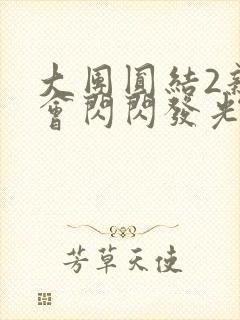 大団圓結2新
會閃閃發光
芳草天使